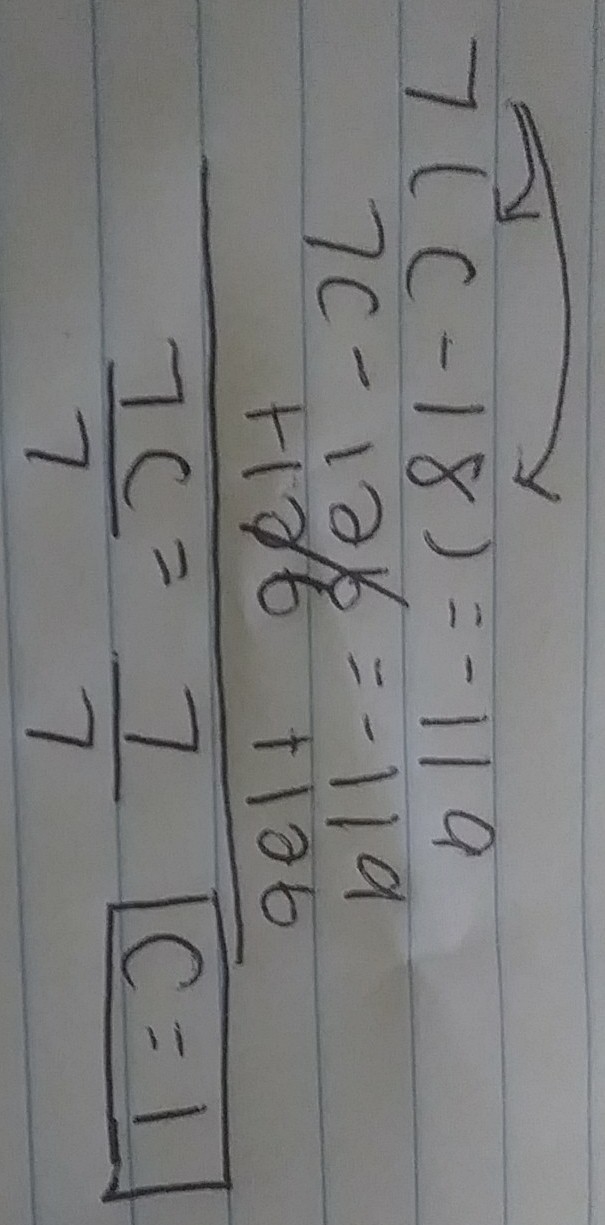 7(C-18)=-119
7C-126=-119
+126 +126
7C=7 C=1
7 7